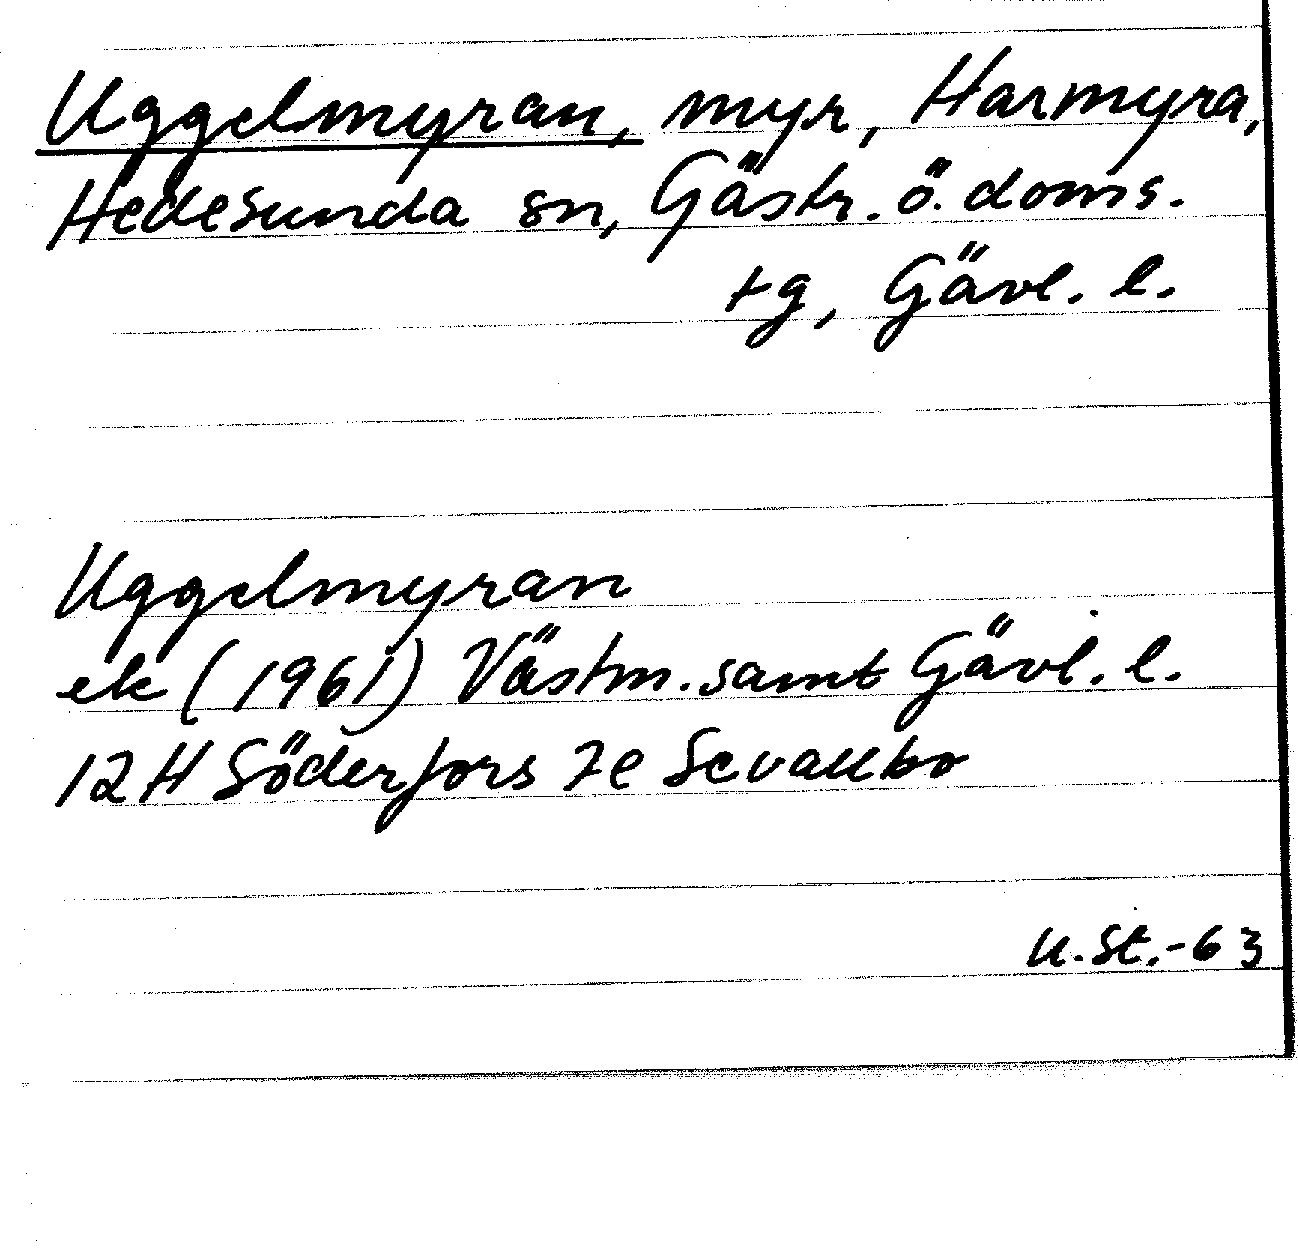 Uggelmyran, myr, Harmyra,
Hedesunda sn, Gästr. ö. doms.
tg, Gävl. l.
Uggelmyran
ek (1961) Västm. samt Gävl. l.
12H Söderfors 7e Sevallbo
U.St.-63